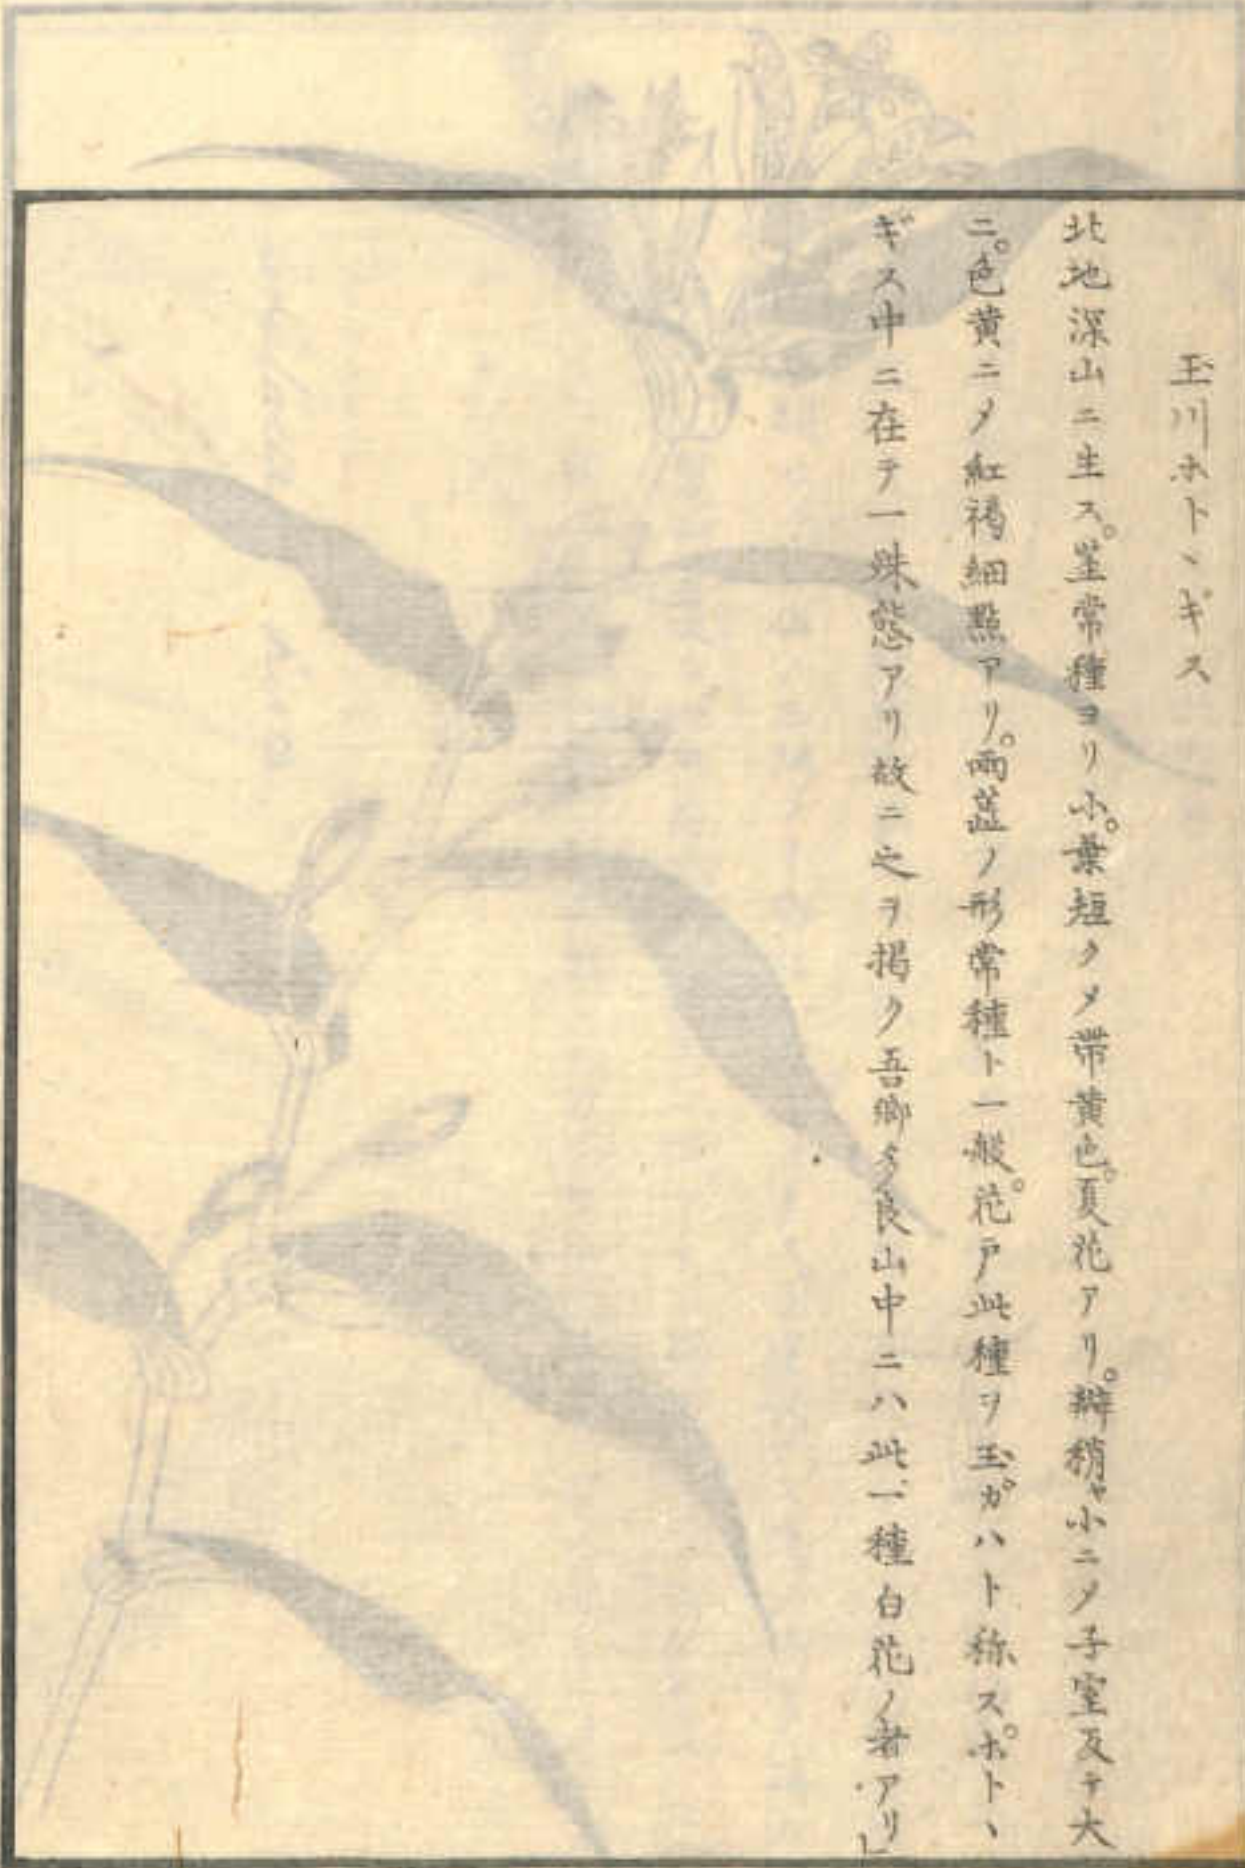 玉川ホトヽギス
北地深山ニ生ス。莖常種ヨリ小。葉短クメ帯黄色。夏花アリ。瓣稍ヤ小ニメ子室反テ大
ニ。色黄ニメ紅褐細點アリ。兩蕋ノ形常種ト一般。花戸此種ヲ玉ガハト稱ス。ホトヽ
ギス中ニ在テ一殊態アリ故ニ之ヲ掲ク吾郷多良山中ニハ此一種白花ノ者アリ